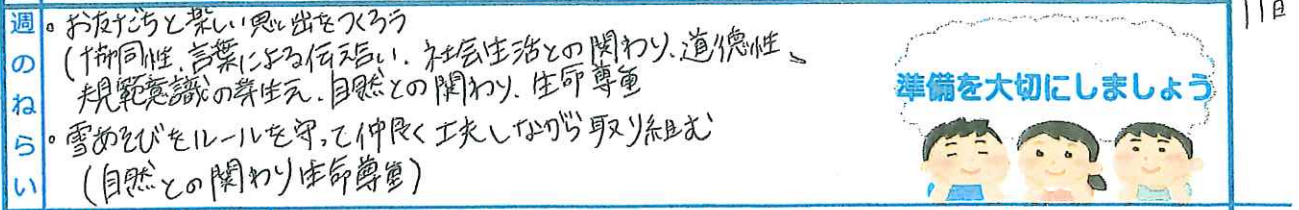 週のねらい
。お友だちと楽しい思い出をつくろう
(協同性、言葉による伝え合い、社会生活との関わり、道徳性、
規範意識の芽生え、自然との関わり、生命尊重
。雪あそびをルールを守って仲良く工夫しながら取り組む
(自然との関わり生命尊重)
準備を大切にしましょう
11日